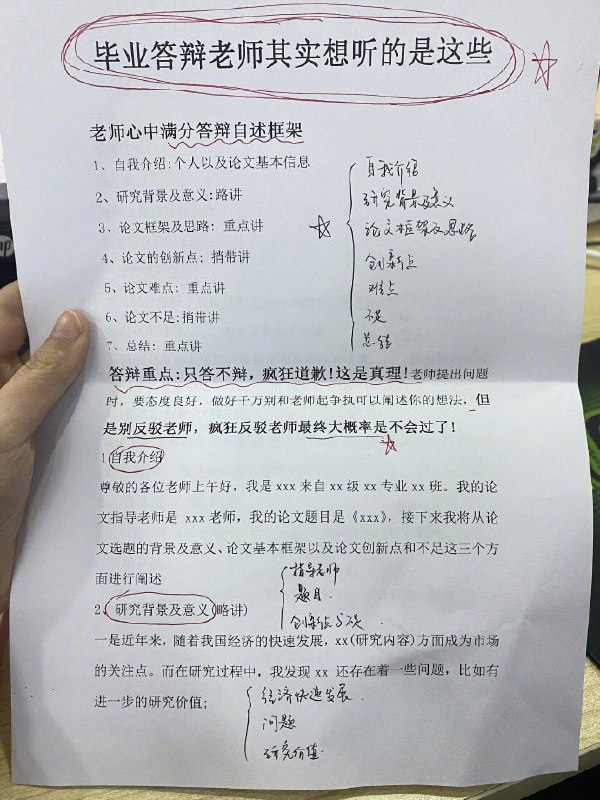 毕业答辩老师其实想听的是这些
老师心中满分答辩自述框架
1、自我介绍:个人以及论文基本信息
2、研究背景及意义:略讲
3、论文框架及思路: 重点讲
4、论文的创新点: 捎带讲
5、论文难点: 重点讲
6、论文不足:捎带讲
7、总结: 重点讲
自我介绍
研究背景及意义
论文框架及思路
创新点
难点
不足
总结
答辩重点:只答不辩，疯狂道歉!这是真理!老师提出问题
时，要态度良好，做好千万别和老师起争执可以阐述你的想法,但
是别反驳老师，疯狂反驳老师最终大概率是不会过了!
1.自我介绍
尊敬的各位老师上午好，我是xxx来自xx级xx专业xx班。我的论
文指导老师是 xxx老师，我的论文题目是《xxx》，接下来我将从论
文选题的背景及意义、论文基本框架以及论文创新点和不足这三个方
面进行阐述
指导老师
题目.
创新点与不足
2.研究背景及意义(略讲)
一是近年来，随着我国经济的快速发展，xx(研究内容)方面成为市场
的关注点。而在研究过程中，我发现xx 还存在着一些问题，比如有
进一步的研究价值;
经济快速发展.
问题
研究价值.